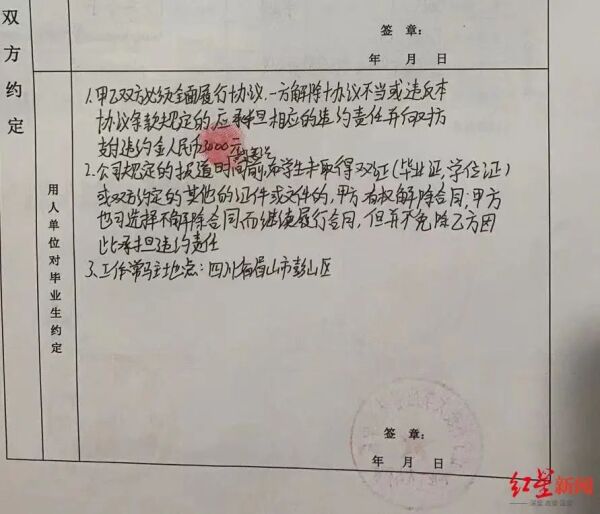 双方约定
签章:
年 月 日
用人单位对毕业生约定
1.甲乙双方必须全面履行协议.一方解除协议不当或违反本
协议条款规定的应承担相应的违约责任并向对方
支付违约金人民币3000元
2.公司规定的报道时间前,如学生未取得双证(毕业证,学位证)
或双方约定的其他的证件或文件的,甲方有权解除合同;甲方
也可选择不解除合同而继续履行合同,但并不免除乙方因
此承担违约责任
3.工作常驻地点:四川省眉山市彭山区
签章:
年 月 日
红星新闻